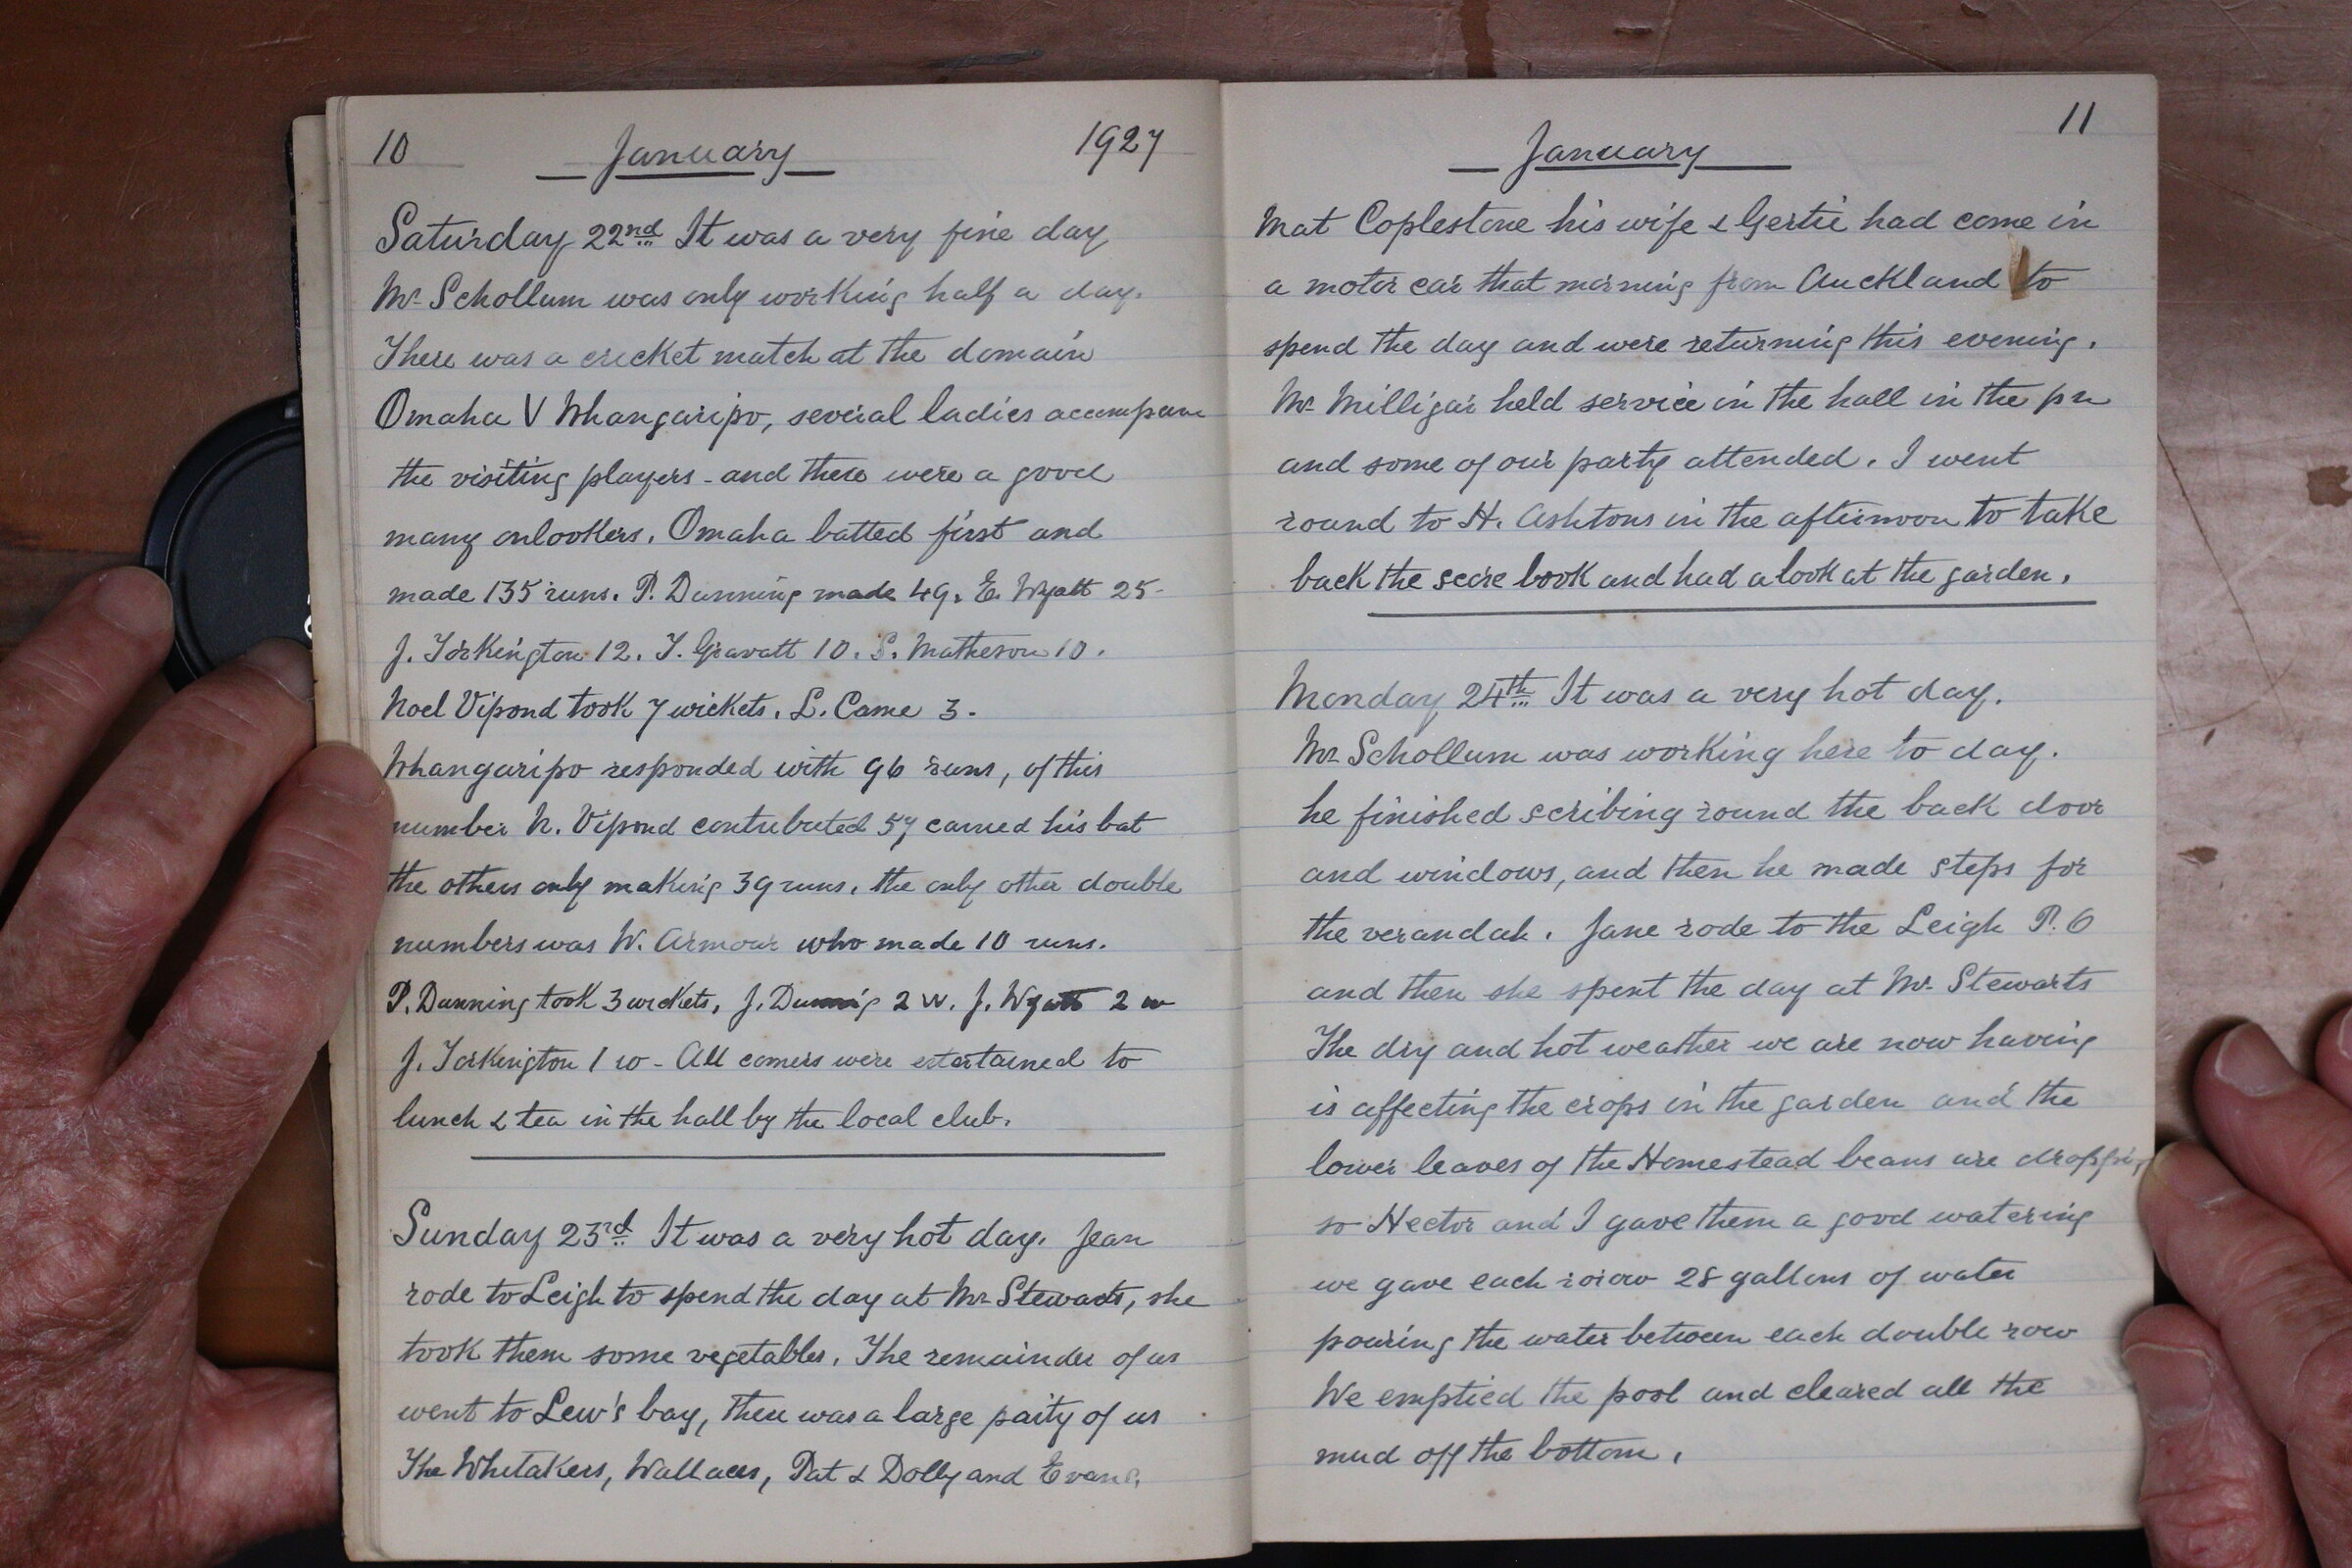 10 January 1927
Saturday 22nd It was a very fine day
Mr Schollum was only working half a day.
There was a cricket match at the domain
Omaha V Whangaripo, several ladies accompan
the visiting players - and there were a good
many onlookers. Omaha batted first and
made 135 runs. P. Dunning made 49. E. Wyatt 25-
J. Torkington 12. T. Gravatt 10. S. Matheson 10.
Noel Vipond took 7 wickets. L. Came 3.
Whangaripo responded with 96 runs, of this
number N. Vipond contributed 57 carried his bat
the others only making 39 runs. the only other double
numbers was W. Armour who made 10 runs.
P. Dunning took 3 wickets, J. Dunnig 2 w. J. Wyatt 2 w
J. Torkington 1 w - All comers were entertained to
lunch & tea in the hall by the local club.
Sunday 23rd It was a very hot day. Jean
rode to Leigh to spend the day at Mr Stewarts, she
took them some vegetables. The remainder of us
went to Lew's bay, there was a large party of us
The Whitakers, Wallaces, Pat & Dolly and Evans.
11
January
Mat Coplestone his wife & Gertie had come in
a motor car that morning from Auckland to
spend the day and were returning this evening.
Mr Milligan held service in the hall in the pm
and some of our party attended. I went
round to H. Ashtons in the afternoon to take
back the score book and had a look at the garden.
Monday 24th It was a very hot day.
Mr Schollum was working here to day.
he finished scribing round the back door
and windows, and then he made steps for
the verandah. Jane rode to the Leigh P.O
and then she spent the day at Mr Stewarts
The dry and hot weather we are now having
is affecting the crops in the garden and the
lower leaves of the Homestead beans are dropping
so Hector and I gave them a good watering
we gave each rorow 28 gallons of water
pouring the water between each double row
We emptied the pool and cleared all the
mud off the bottom.